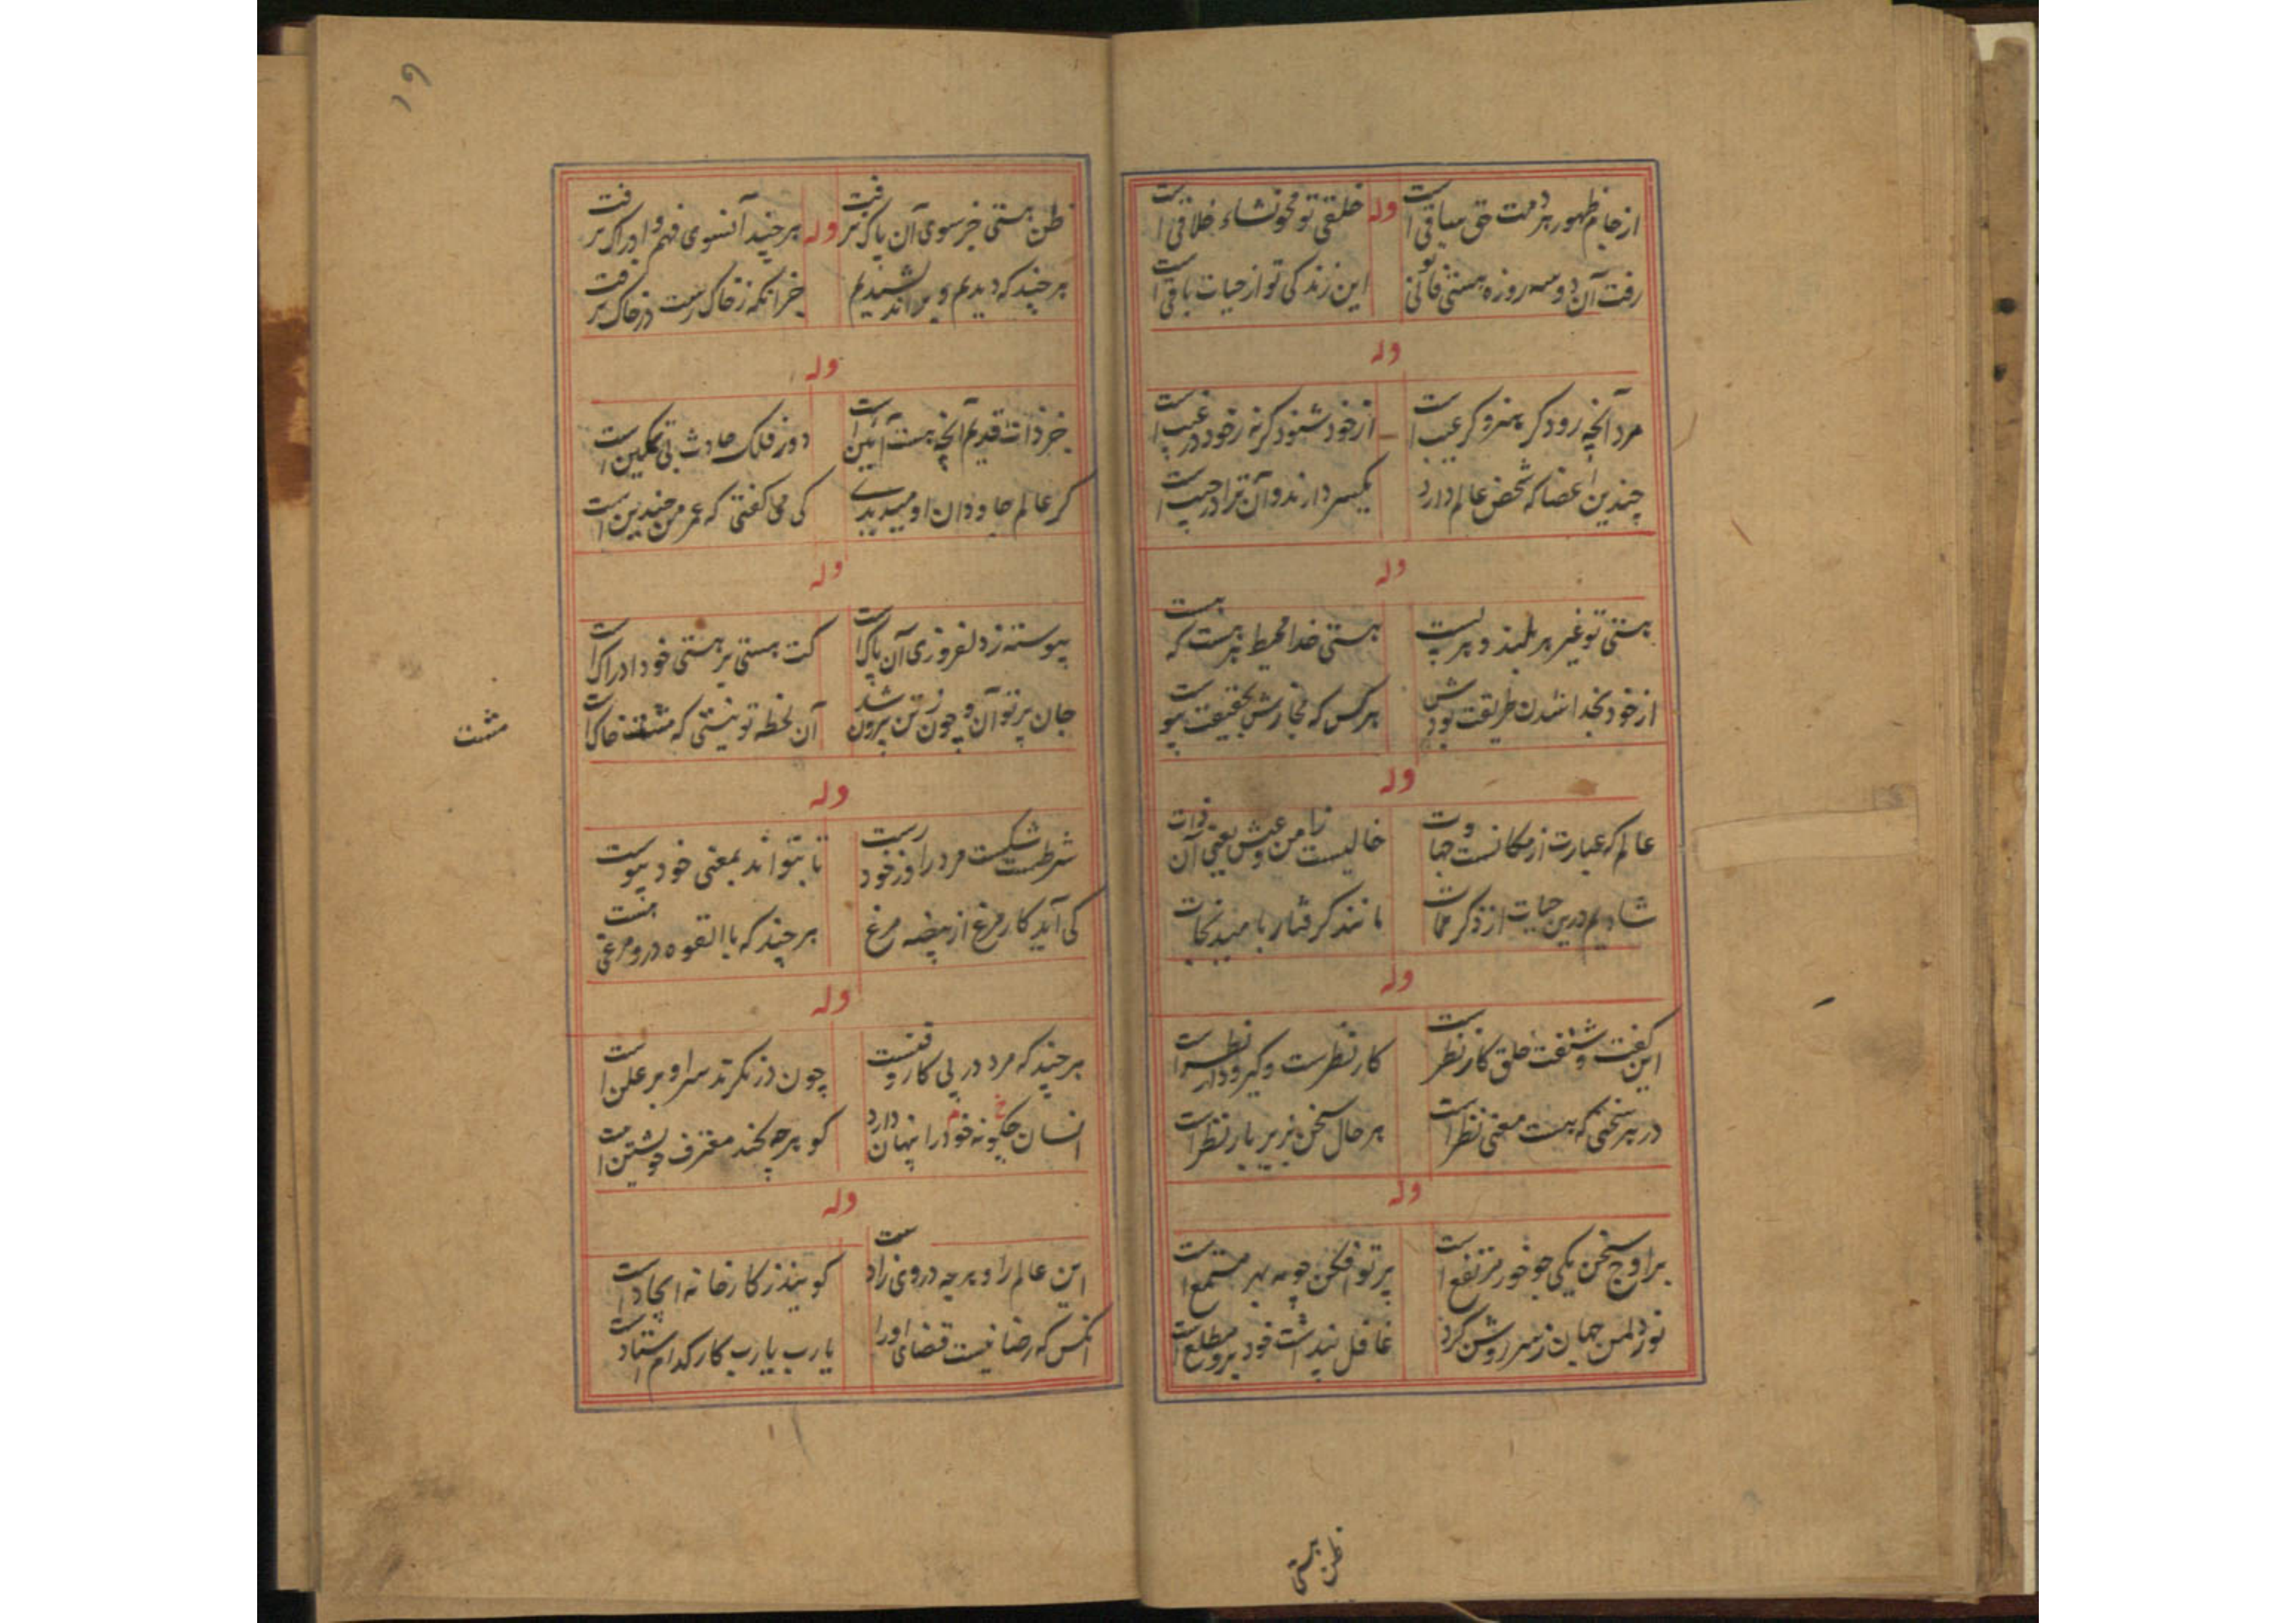 از جام ظهور هر دمت حق ساقی است
وله
خلقی تو محو نشاء خلاقی است
رفت آن دو سه روزه هستی فانی تو
این زندگی تو از حیات باقی است
وله
مرد آنچه رود کر عیب است
از خود شنود کرنه ز خود در عیب است
چندین اعضا که شخص عالم دارد
یکسر دارند و آن ترا در جیب است
وله
هستی تو غیر هر بلند و هر پست
هستی خدا محیط هر هست که هست
از خود بخدا شدن طریقت بود
هر کس که مجازش بحقیقت پیوست
وله
عالم که عبارت از مکانست و جهات
خالیست ز ما من و عیش یعنی آن ذات
شادیم درین حیات از ذکر ممات
مانند گرفتار بامید نجات
وله
این گفت و شنفت خلق کار نظر است
کار نظرست و گیرودار نظر است
در هر سخنی که هست معنی نظر است
هر حال سخن بزیر بار نظر است
وله
بر اوج سخن یکی چو خور مرتفع است
پرتو افکن چو مه بهر مستمع است
نور دلمن جهان ز سر روشن کرد
غافل پنداشت خود برو مطلع است
ظن هستی
۱۹
ظن هستی جز سوی آن پاک نرفت
وله
هر چند آنسوی فهم و ادراک نرفت
هر چند که دیدیم و براندیشیدیم
جز آنکه ز خاک رست در خاک نرفت
وله
جز ذات قدیم آنچه هست آئین است
دور فلک حادث بی تمکین است
گر عالم جاودان او میدیدی
کی می گفتی که عمر من چندین است
وله
پیوسته ز دلفروزی آن پاک است
کت هستی بر هستی خود ادراک است
جان پرتو آن و چون ز تن بیرون شد
آن لحظه تو نیستی که مشت خاک است
مشت
وله
شرطست شکست مرد را و ز خود رست
تا بتواند بمعنی خود پیوست
کی آید کار مرغ از بیضه مرغ
هر چند که بالقوه درو مرغی هست
وله
هر چند که مرد در پی کار و فنست
چون در نگرند سر او بر علن است
انسان چگونه خود را پنهان دارد
کو هرچه کند معرف خویشتن است
وله
این عالم را و هرچه در وی زاد است
گویند ز کارخانه ایجاد است
آنکس که رضا نیست قضای او را
یارب یارب کار کدام استاد است